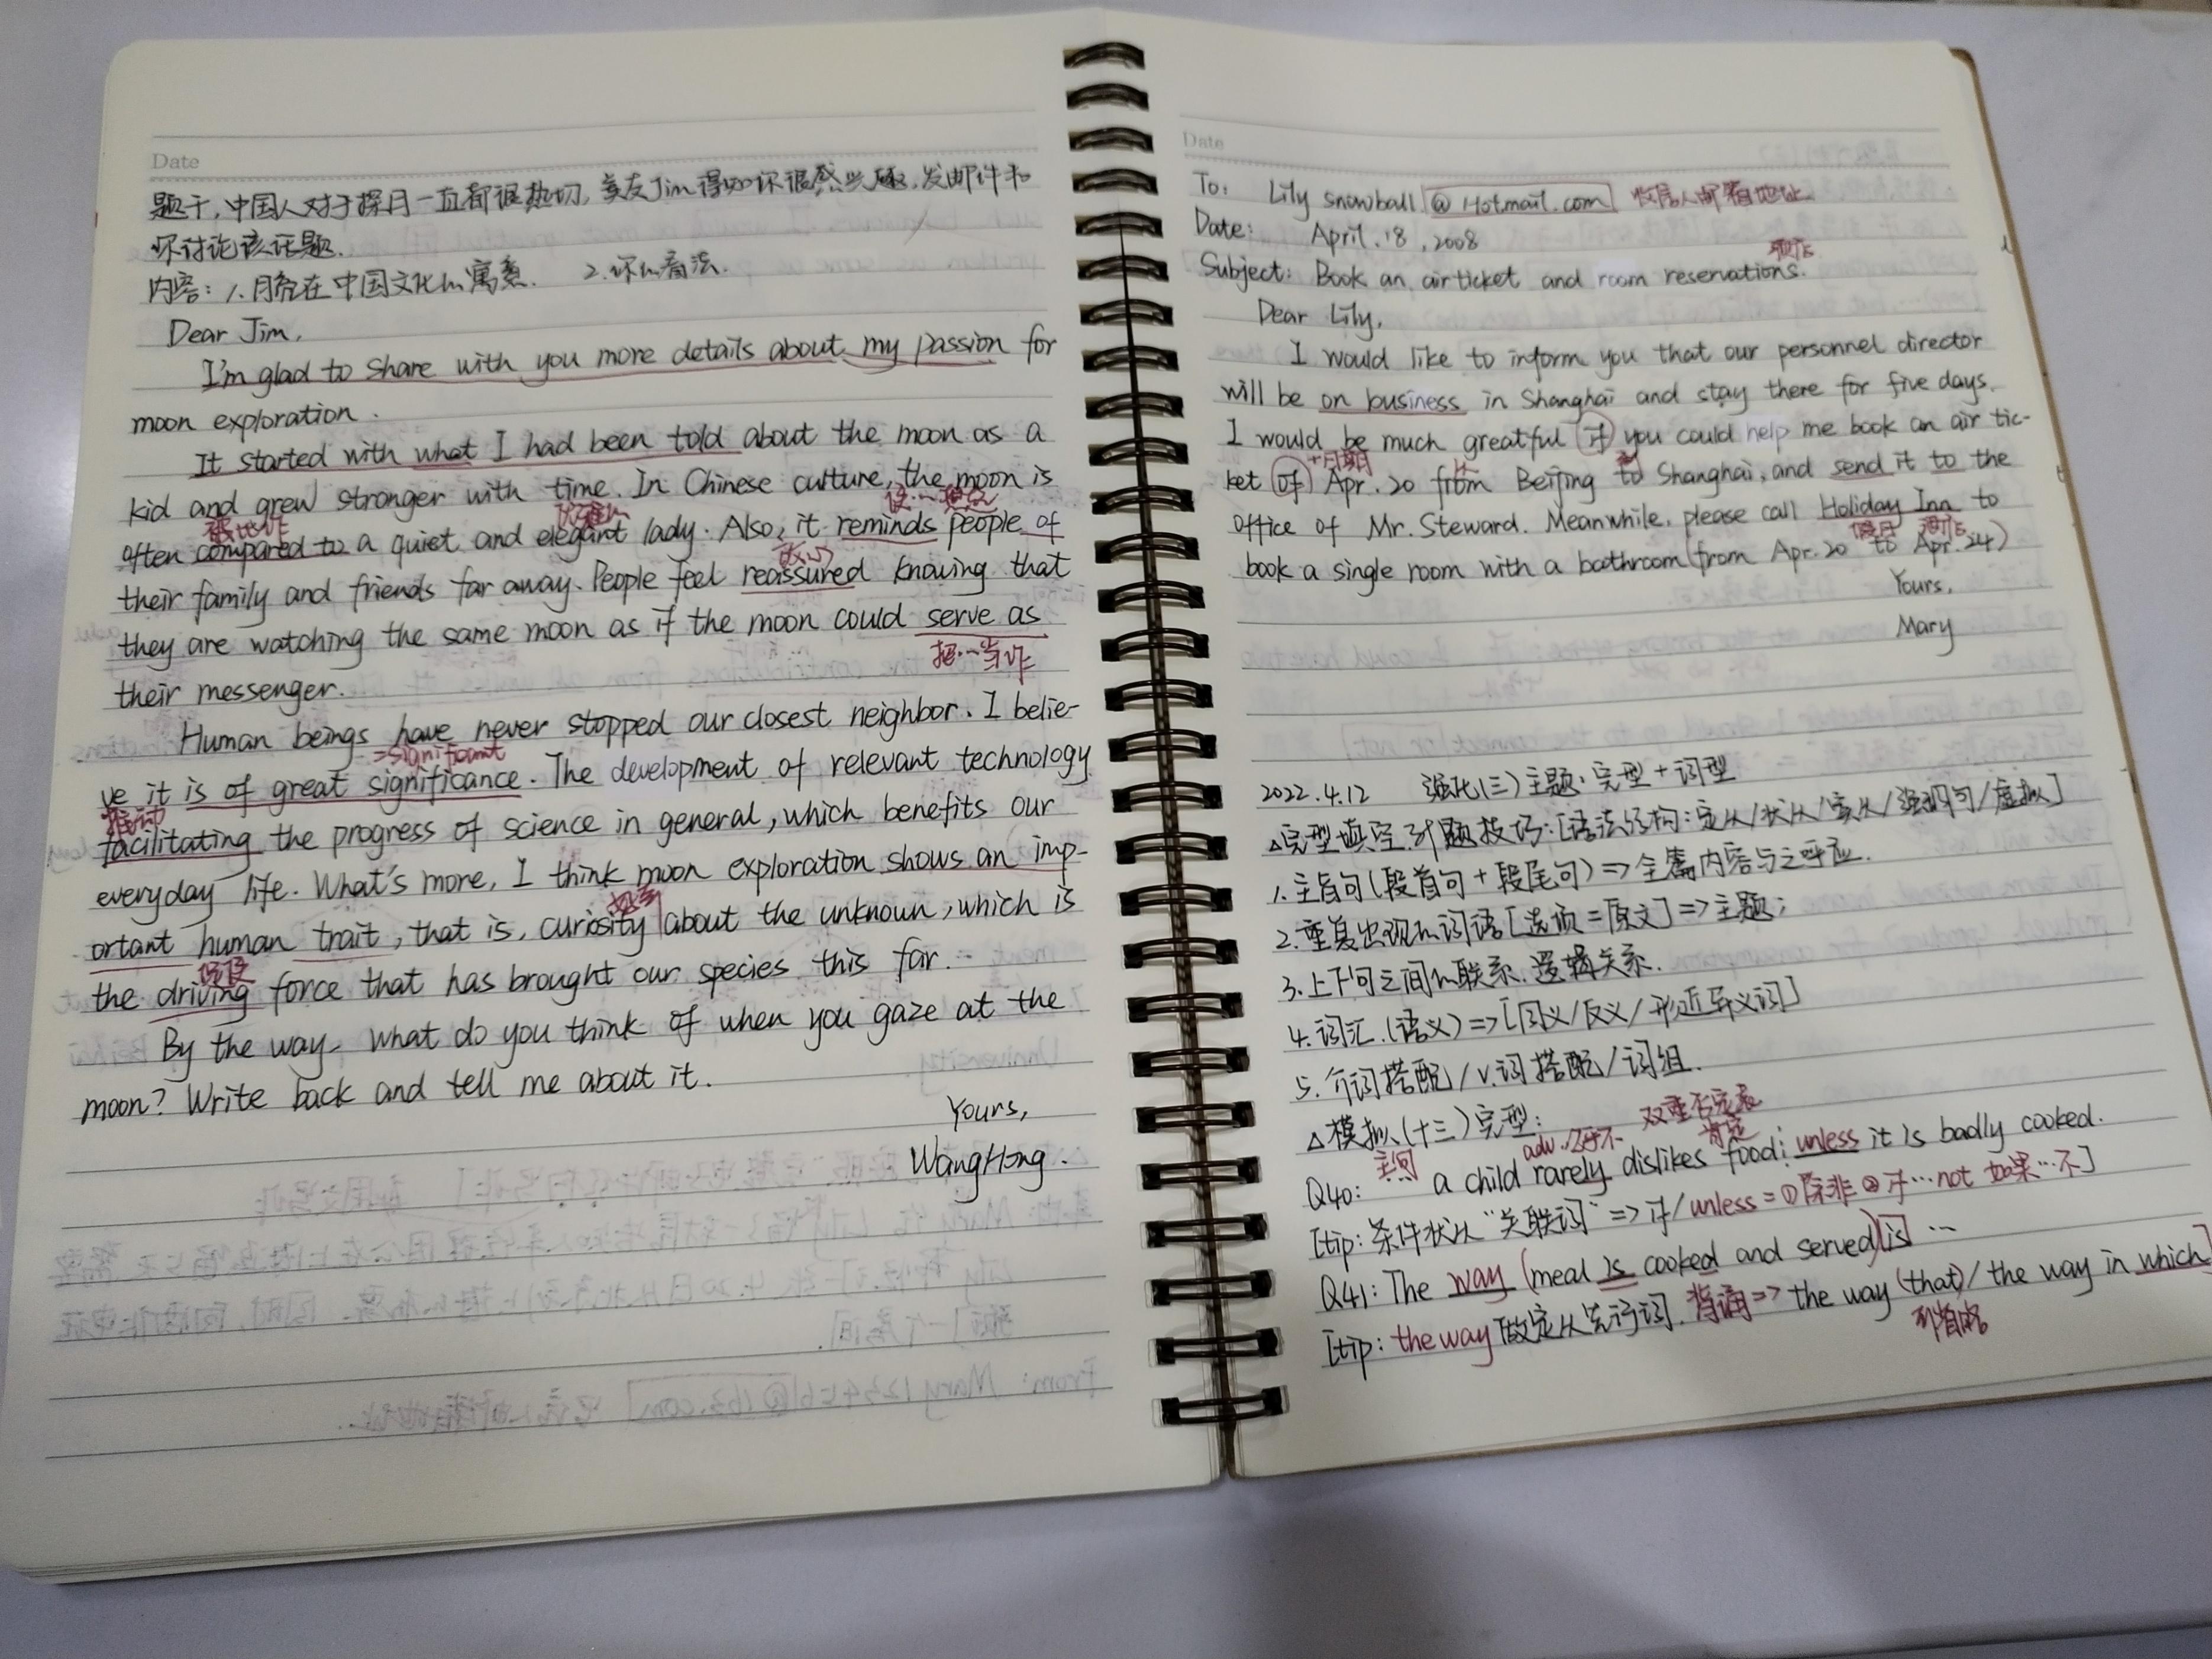 Date
题干,中国人对于探月一直都很热切,美友Jim得知你很感兴趣.发邮件和
你讨论该话题.
内容:1.月亮在中国文化的寓意. 2.你的看法.
Dear Jim,
I'm glad to share with you more details about my passion for
moon exploration.
It started with what I had been told about the moon as a
kid and grew stronger with time. In Chinese culture, the moon is
被比作 优雅的 使…想起
often compared to a quiet and elegant lady. Also, it reminds people of
放心
their family and friends far away. People feel reassured knowing that
they are watching the same moon as if the moon could serve as
把…当作
their messenger.
Human beings have never stopped our closest neighbor. I belie-
=>significant
ve it is of great significance. The development of relevant technology
推动
facilitating the progress of science in general, which benefits our
everyday life. What's more, I think moon exploration shows an imp-
ortant human trait, that is, curiosity about the unknown, which is
the driving force that has brought our species this far.
By the way, what do you think of when you gaze at the
moon? Write back and tell me about it.
Yours,
Wang Hong.
Date
To: Lily snowball @ Hotmail.com 收信人邮箱地址
Date: April.18,2008
Subject: Book an air ticket and room reservations.
Dear Lily,
I would like to inform you that our personnel director
will be on business in Shanghai and stay there for five days.
I would be much greatful if you could help me book an air tic-
+日期 从 到
ket of Apr.20 from Beijing to Shanghai, and send it to the
office of Mr. Steward. Meanwhile, please call Holiday Inn to
假日 酒店
book a single room with a bathroom (from Apr.20 to Apr.24)
Yours,
Mary
2022.4.12 强化(三)主题:完型+词型
△完型填空.外题技巧:[语法结构:定从/状从/宾从/强调句/虚拟]
1.主旨句(段首句+段尾句)=>全篇内容与之呼应.
2.重复出现的词语[选项=原文]=>主题;
3.上下句之间的联系.逻辑关系.
4.词汇.(语义)=>[同义/反义/形近异义词]
5.介词搭配/v.词搭配/词组.
△模拟(十三)完型:
双重否定表肯定
主句 adv.几乎不
Q40: a child rarely dislikes food; unless it is badly cooked.
[tip:条件状从"关联词"=>if/unless=①除非②if…not 如果…不]
Q41: The way (meal is cooked and served) is …
[tip: the way做定从先行词.背诵=>the way (that)/the way in which]
可省略